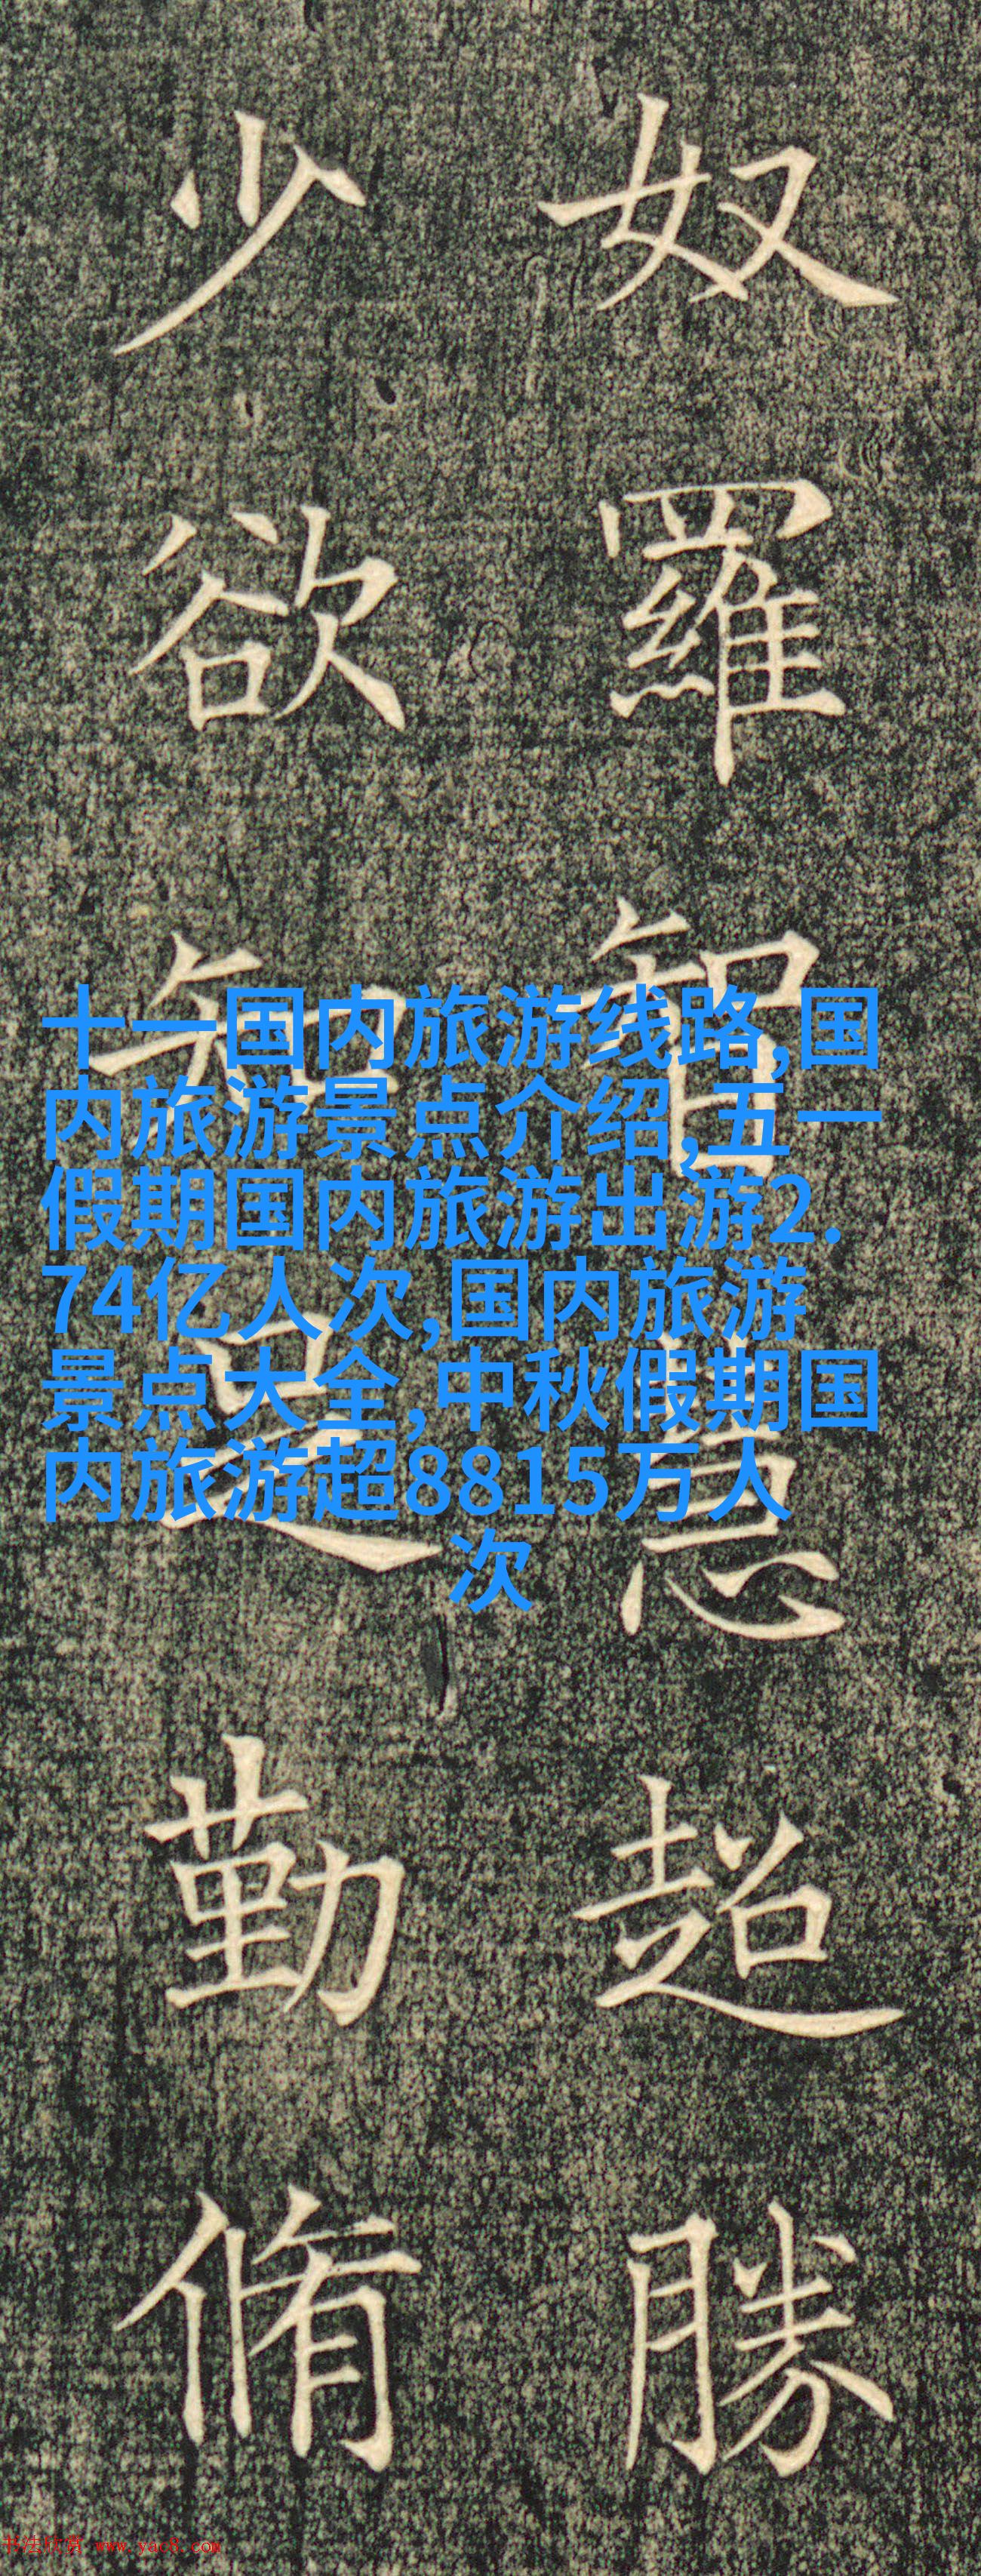 奴羅智慧超勝
少欲知足勤脩
十一国内旅游线路,国
内旅游景点介绍,五一
假期国内旅游出游2.
74亿人次,国内旅游
景点大全,中秋假期国
内旅游超8815万人
次
书法欣赏 www.yac8.com